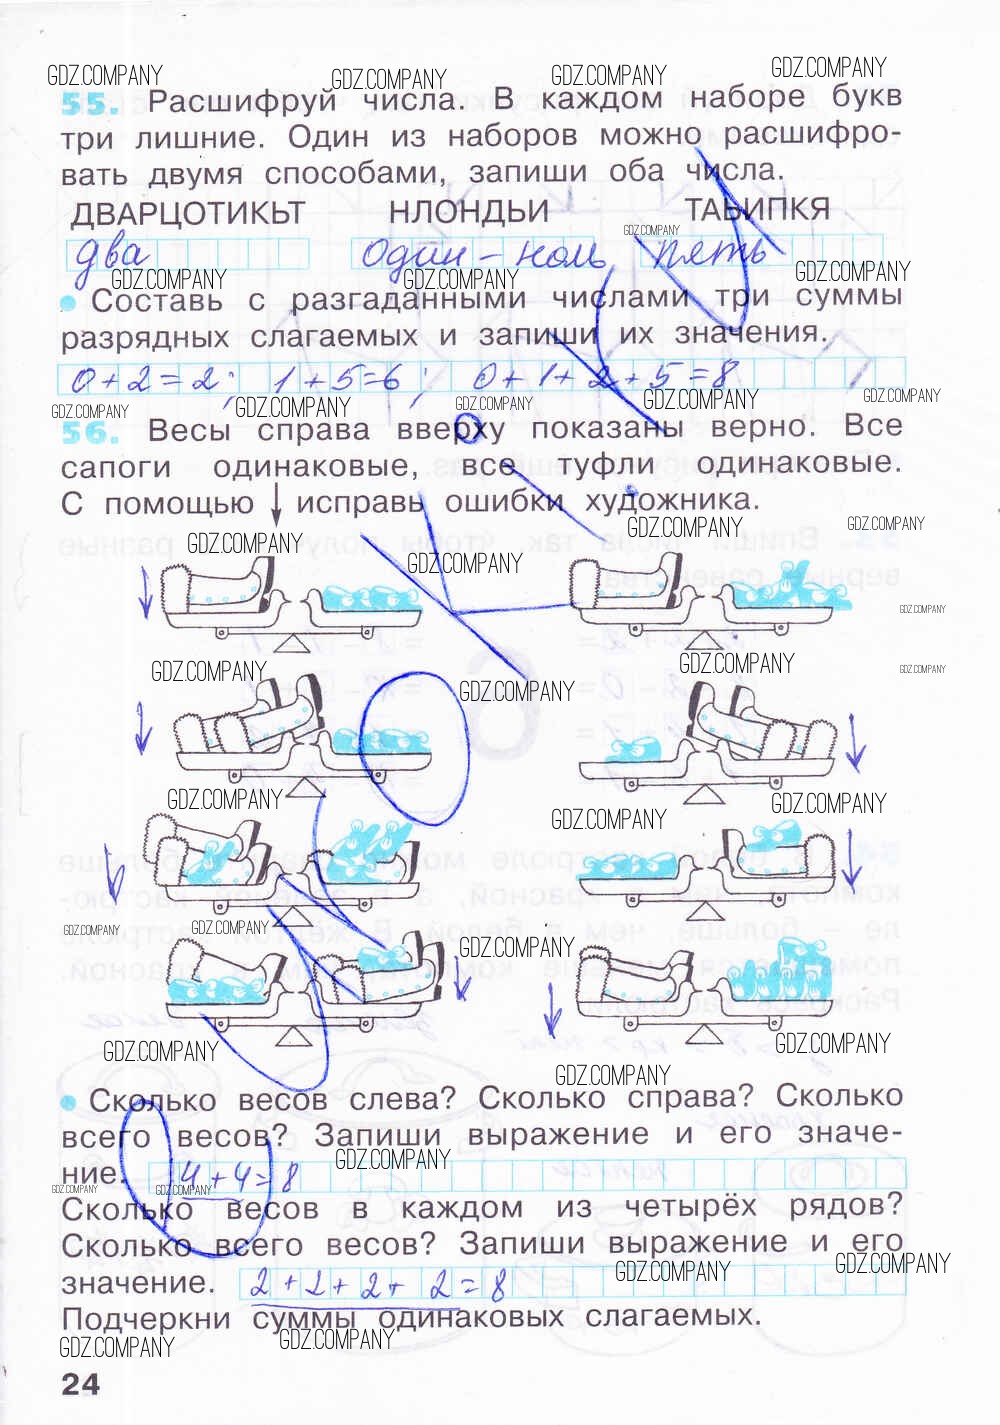 GDZ.COMPANY GDZ.COMPANY GDZ.COMPANY GDZ.COMPANY
55. Расшифруй числа. В каждом наборе букв
три лишние. Один из наборов можно расшифро-
вать двумя способами, запиши оба числа.
ДВАРЦОТИКЬТ НЛОНДЬИ ТАЬИПКЯ
GDZ.COMPANY
два один – ноль пять
GDZ.COMPANY GDZ.COMPANY GDZ.COMPANY
Составь с разгаданными числами три суммы
разрядных слагаемых и запиши их значения.
0+2=2; 1+5=6; 0+1+2+5=8
GDZ.COMPANY GDZ.COMPANY GDZ.COMPANY GDZ.COMPANY GDZ.COMPANY
56. Весы справа вверху показаны верно. Все
сапоги одинаковые, все туфли одинаковые.
С помощью ↓ исправь ошибки художника.
GDZ.COMPANY GDZ.COMPANY GDZ.COMPANY GDZ.COMPANY
GDZ.COMPANY
GDZ.COMPANY GDZ.COMPANY GDZ.COMPANY GDZ.COMPANY
GDZ.COMPANY GDZ.COMPANY GDZ.COMPANY
GDZ.COMPANY GDZ.COMPANY GDZ.COMPANY
GDZ.COMPANY GDZ.COMPANY
GDZ.COMPANY
Сколько весов слева? Сколько справа? Сколько
всего весов? Запиши выражение и его значе-
ние. 4+4=8
GDZ.COMPANY
GDZ.COMPANY GDZ.COMPANY
Сколько весов в каждом из четырёх рядов?
Сколько всего весов? Запиши выражение и его
значение. 2+2+2+2=8
GDZ.COMPANY GDZ.COMPANY
Подчеркни суммы одинаковых слагаемых.
GDZ.COMPANY GDZ.COMPANY
24